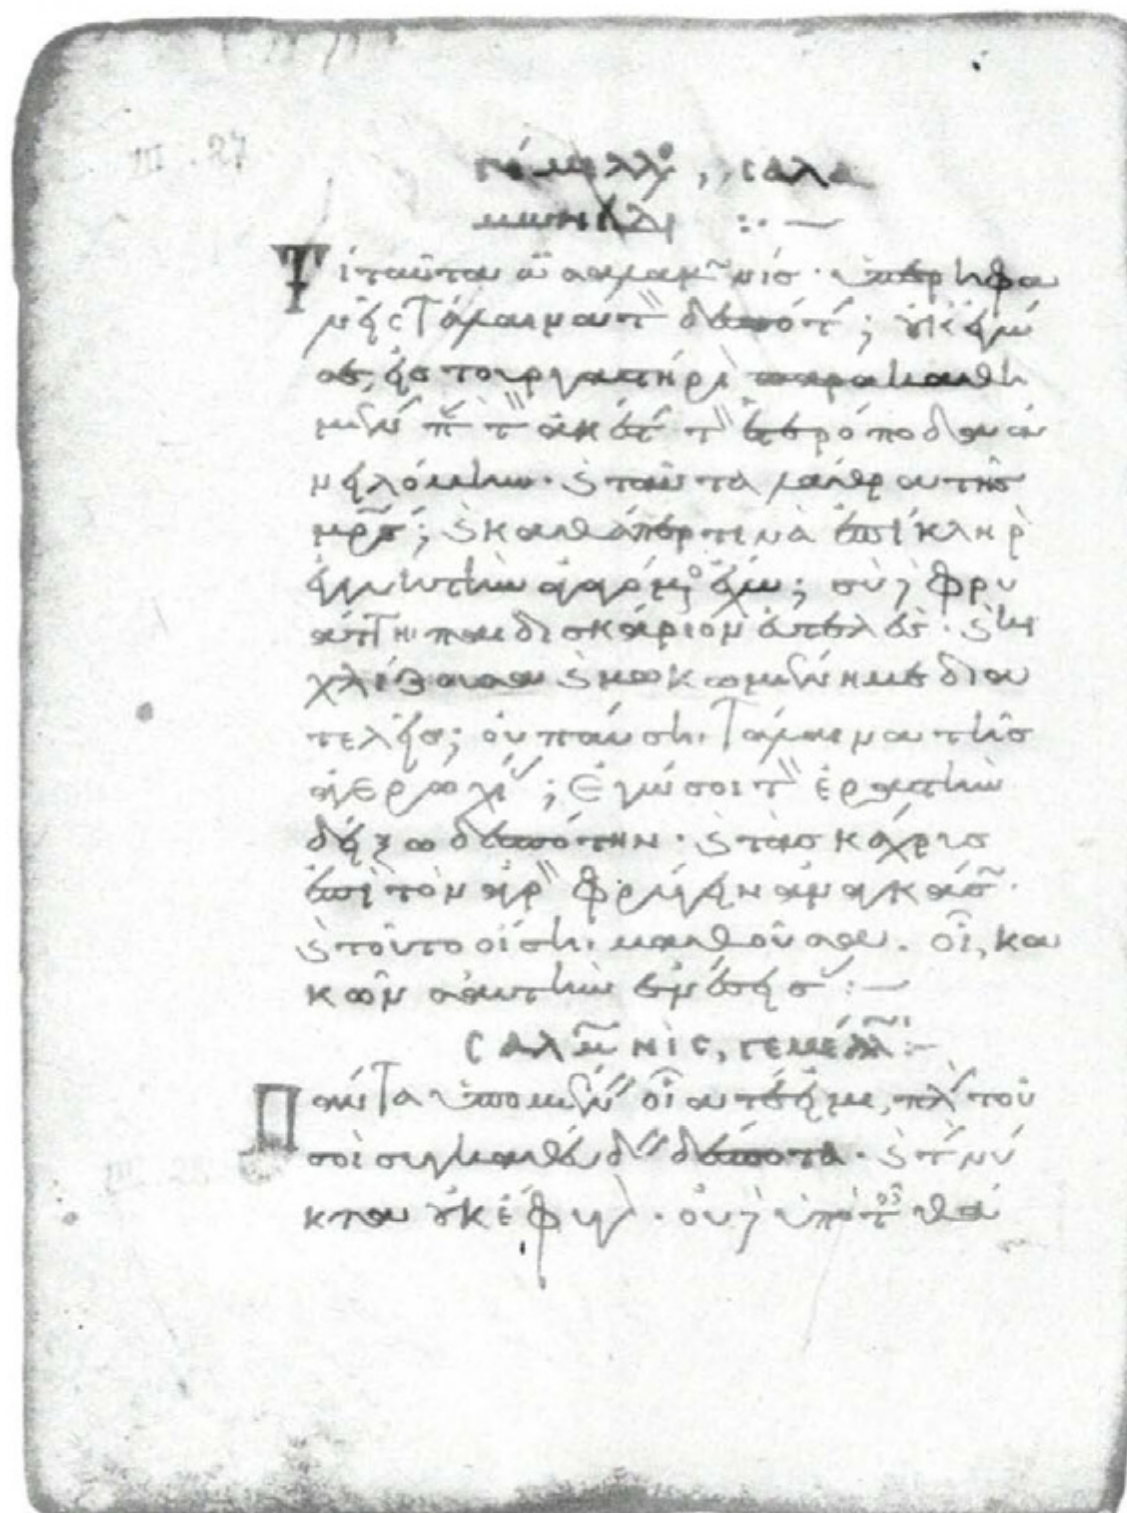 γέμελλο, σαλα
μωνίδι :—
Τί ταῦτα ὦ σαλαμωνίς· ὑπερηφα
νεῖς τάλαινα τ̏ δεσπότ; οὐκ ἐγώ
σε, εἰς τουργαστήρι παρακαθη
μέν π τ̏ ἀκεστ τ̏ ἑτερόποδα ἀν
ειλόμην· καὶ ταῦτα λάθρα τῆς
μρς; καὶ καθάπερ τινὰ ἐπίκληρ
ἐγγυητὴν ἀγαγόμο ἔχω; σὺ δὲ φρυ
άττη παιδισκάριον εὐτελές· καὶ κι
χλίζουσα καὶ μωκωμέν με δια
τελεῖς; οὐ παύση τάλαινα τῆς
ἀγερωχί; Ἐγώ σοι τ̏ ἐραστὴν
δείξω δεσπότην· καὶ τὰς κάχρυς
ἐπὶ τὸν ἀγρ φρύγειν ἀναγκάσ·
καὶ τοῦτο εἴση μαθοῦσα. οἷ, κα
κῶν σαυτὴν ἐνέσεισ :—
σαλμνὶς, γεμέλλ :—
Πάντα ὑπομέν οἵα τέ εἰμι, πλ τοῦ
σοὶ συγκαθεύδ δέσποτα· καὶ τ νύ
κτα οὐκ ἔφυγ· οὐδ ὑπὸ τοῖ θά